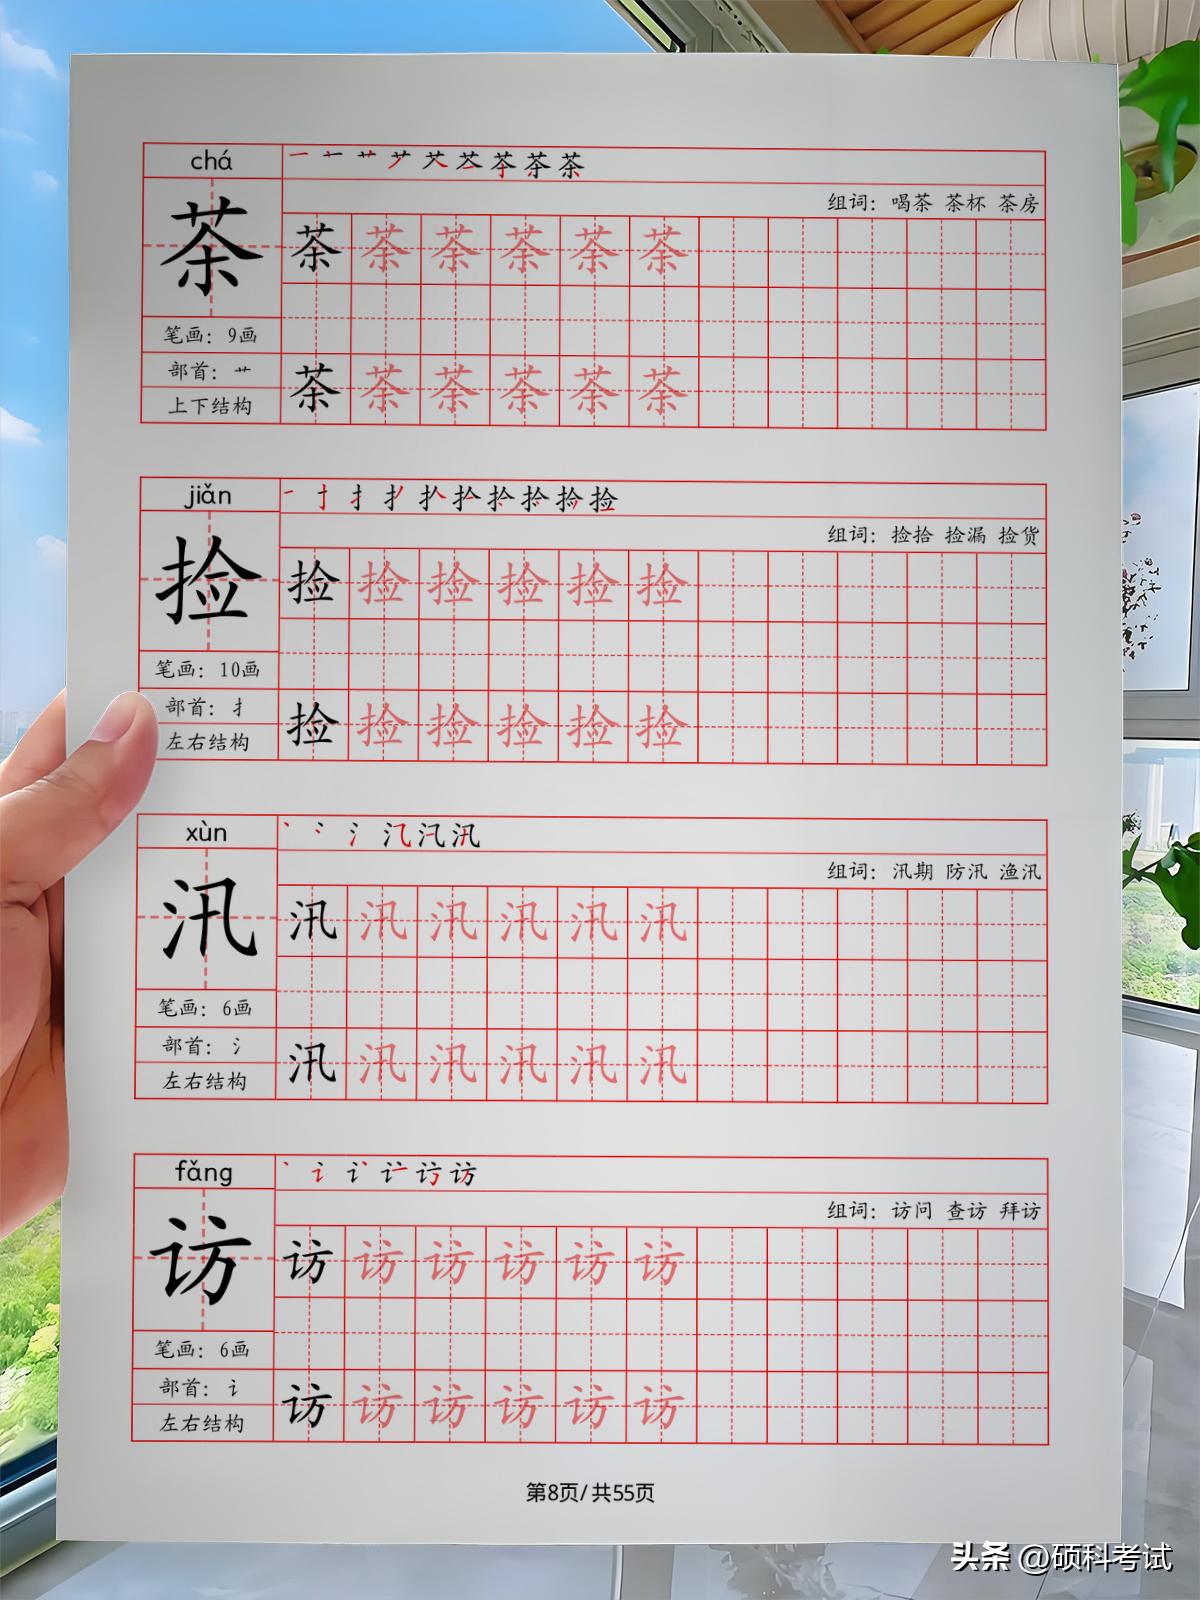 chá
茶
笔画：9画
部首：艹
上下结构
组词：喝茶 茶杯 茶房
茶 茶 茶 茶 茶 茶
茶 茶 茶 茶 茶 茶
jiǎn
捡
笔画：10画
部首：扌
左右结构
组词：捡拾 捡漏 捡货
捡 捡 捡 捡 捡 捡
捡 捡 捡 捡 捡 捡
xùn
汛
笔画：6画
部首：氵
左右结构
组词：汛期 防汛 渔汛
汛 汛 汛 汛 汛 汛
汛 汛 汛 汛 汛 汛
fǎng
访
笔画：6画
部首：讠
左右结构
组词：访问 查访 拜访
访 访 访 访 访 访
访 访 访 访 访 访
第8页/共55页
头条 @硕科考试